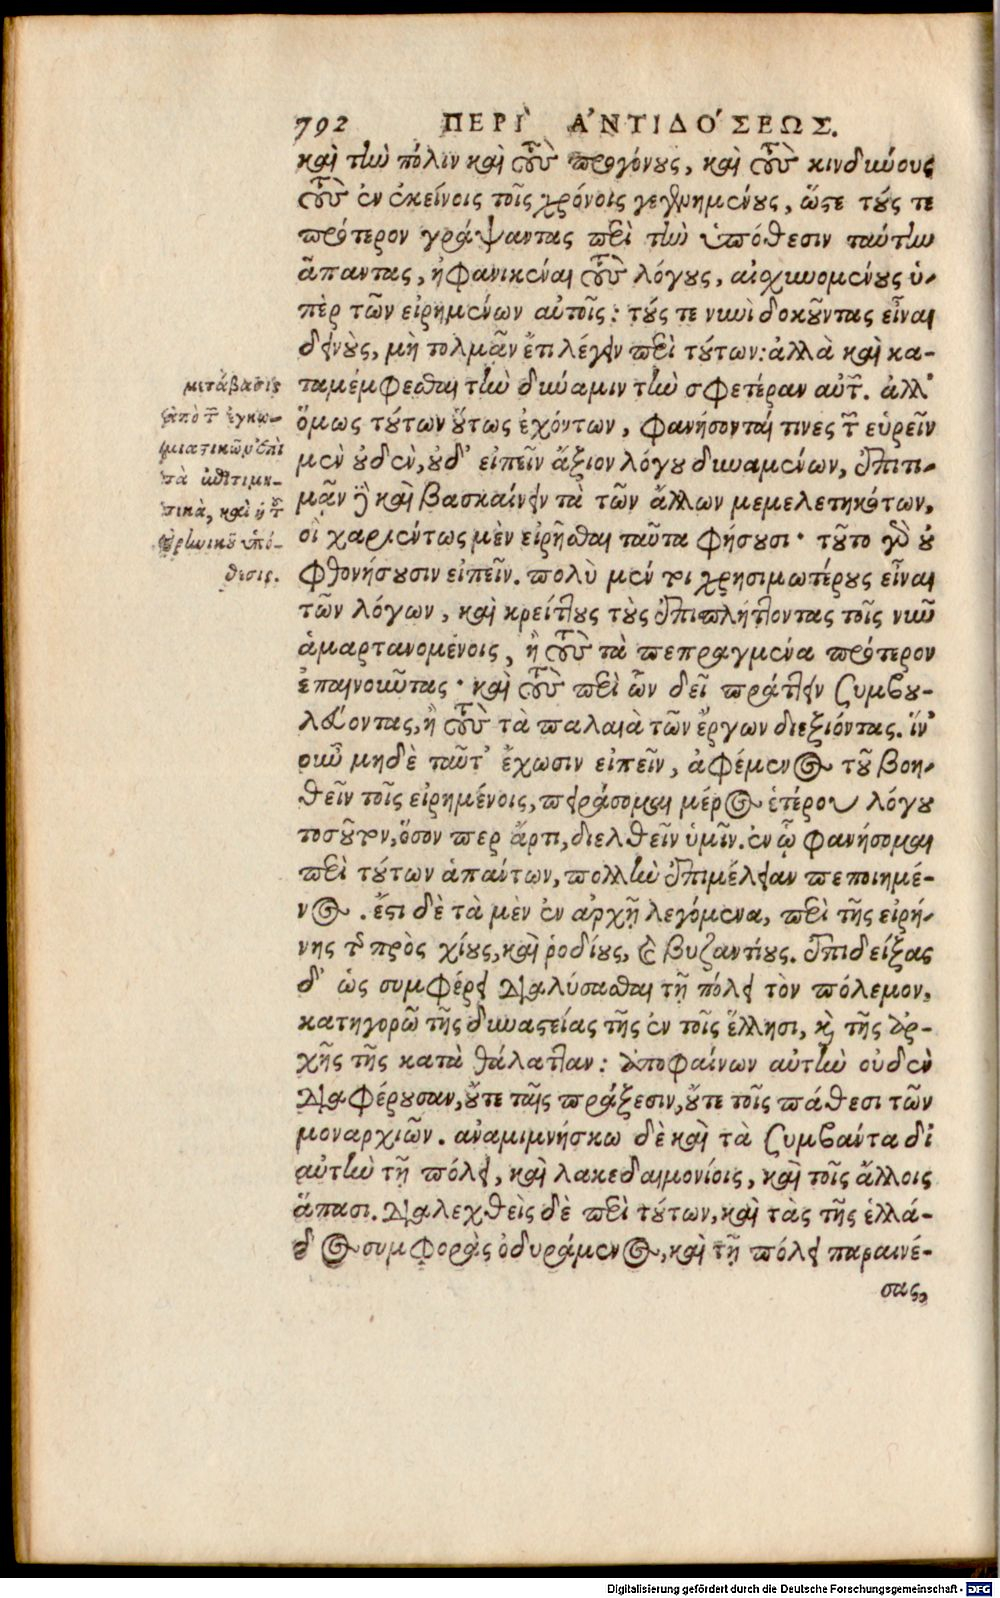 792 ΠΕΡῚ ἈΝΤΙΔΌΣΕΩΣ.
καὶ τὴν πόλιν καὶ τοὺς προγόνους, καὶ τοὺς κινδύνους
τοὺς ἐν ἐκείνοις τοῖς χρόνοις γεγενημένους, ὥστε τούς τε
πρότερον γράψαντας περὶ τὴν ὑπόθεσιν ταύτην
ἅπαντας, ἠφανικέναι τοὺς λόγους, αἰσχυνομένους ὑ-
πὲρ τῶν εἰρημένων αὐτοῖς: τούς τε νυνὶ δοκοῦντας εἶναι
δεινοὺς, μὴ τολμᾶν ἔτι λέγειν περὶ τούτων: ἀλλὰ καὶ κα-
ταμέμφεσθαι τὴν δύναμιν τὴν σφετέραν αὐτῶν. ἀλλ'
ὅμως τούτων οὕτως ἐχόντων, φανήσονταί τινες τῶν εὑρεῖν
μὲν οὐδὲν, οὐδ' εἰπεῖν ἄξιον λόγου δυναμένων, ἐπιτι-
μᾶν δὲ καὶ βασκαίνειν τὰ τῶν ἄλλων μεμελετηκότων,
οἳ χαριέντως μὲν εἰρῆσθαι ταῦτα φήσουσι· τοῦτο γὰρ οὐ
φθονήσουσιν εἰπεῖν. πολὺ μέν τοι χρησιμωτέρους εἶναι
τῶν λόγων, καὶ κρείττους τοὺς ἐπιπλήττοντας τοῖς νῦν
ἁμαρτανομένοις, ἢ τοὺς τὰ πεπραγμένα πρότερον
ἐπαινοῦντας· καὶ τοὺς περὶ ὧν δεῖ πράττειν ξυμβου-
λεύοντας, ἢ τοὺς τὰ παλαιὰ τῶν ἔργων διεξιόντας. ἵν'
οὖν μηδὲ ταῦτ' ἔχωσιν εἰπεῖν, ἀφέμενος τοῦ βοη-
θεῖν τοῖς εἰρημένοις, πειράσομαι μέρος ἑτέρου λόγου
τοσοῦτον, ὅσον περ ἄρτι, διελθεῖν ὑμῖν. ἐν ᾧ φανήσομαι
περὶ τούτων ἁπάντων, πολλὴν ἐπιμέλειαν πεποιημέ-
νος. ἔστι δὲ τὰ μὲν ἐν ἀρχῇ λεγόμενα, περὶ τῆς εἰρή-
νης τῆς πρὸς χίους, καὶ ῥοδίους, καὶ βυζαντίους. ἐπιδείξας
δ' ὡς συμφέρει διαλύσασθαι τῇ πόλει τὸν πόλεμον,
κατηγορῶ τῆς δυναστείας τῆς ἐν τοῖς ἕλλησι, καὶ τῆς ἀρ-
χῆς τῆς κατὰ θάλατταν: ἀποφαίνων αὐτὴν οὐδὲν
διαφέρουσαν, οὔτε ταῖς πράξεσιν, οὔτε τοῖς πάθεσι τῶν
μοναρχιῶν. ἀναμιμνήσκω δὲ καὶ τὰ ξυμβάντα δι'
αὐτὴν τῇ πόλει, καὶ λακεδαιμονίοις, καὶ τοῖς ἄλλοις
ἅπασι. διαλεχθεὶς δὲ περὶ τούτων, καὶ τὰς τῆς ἑλλά-
δος συμφορὰς ὀδυράμενος, καὶ τῇ πόλει παραινέ-
σας,
μετάβασις
ἀπὸ τῶν ἐγκω-
μιαστικῶν ἐπὶ
τὰ ἐπιτιμη-
τικὰ, καὶ ἡ τοῦ
εἰρηνικοῦ ὑπό-
θεσις.
Digitalisierung gefördert durch die Deutsche Forschungsgemeinschaft - DFG